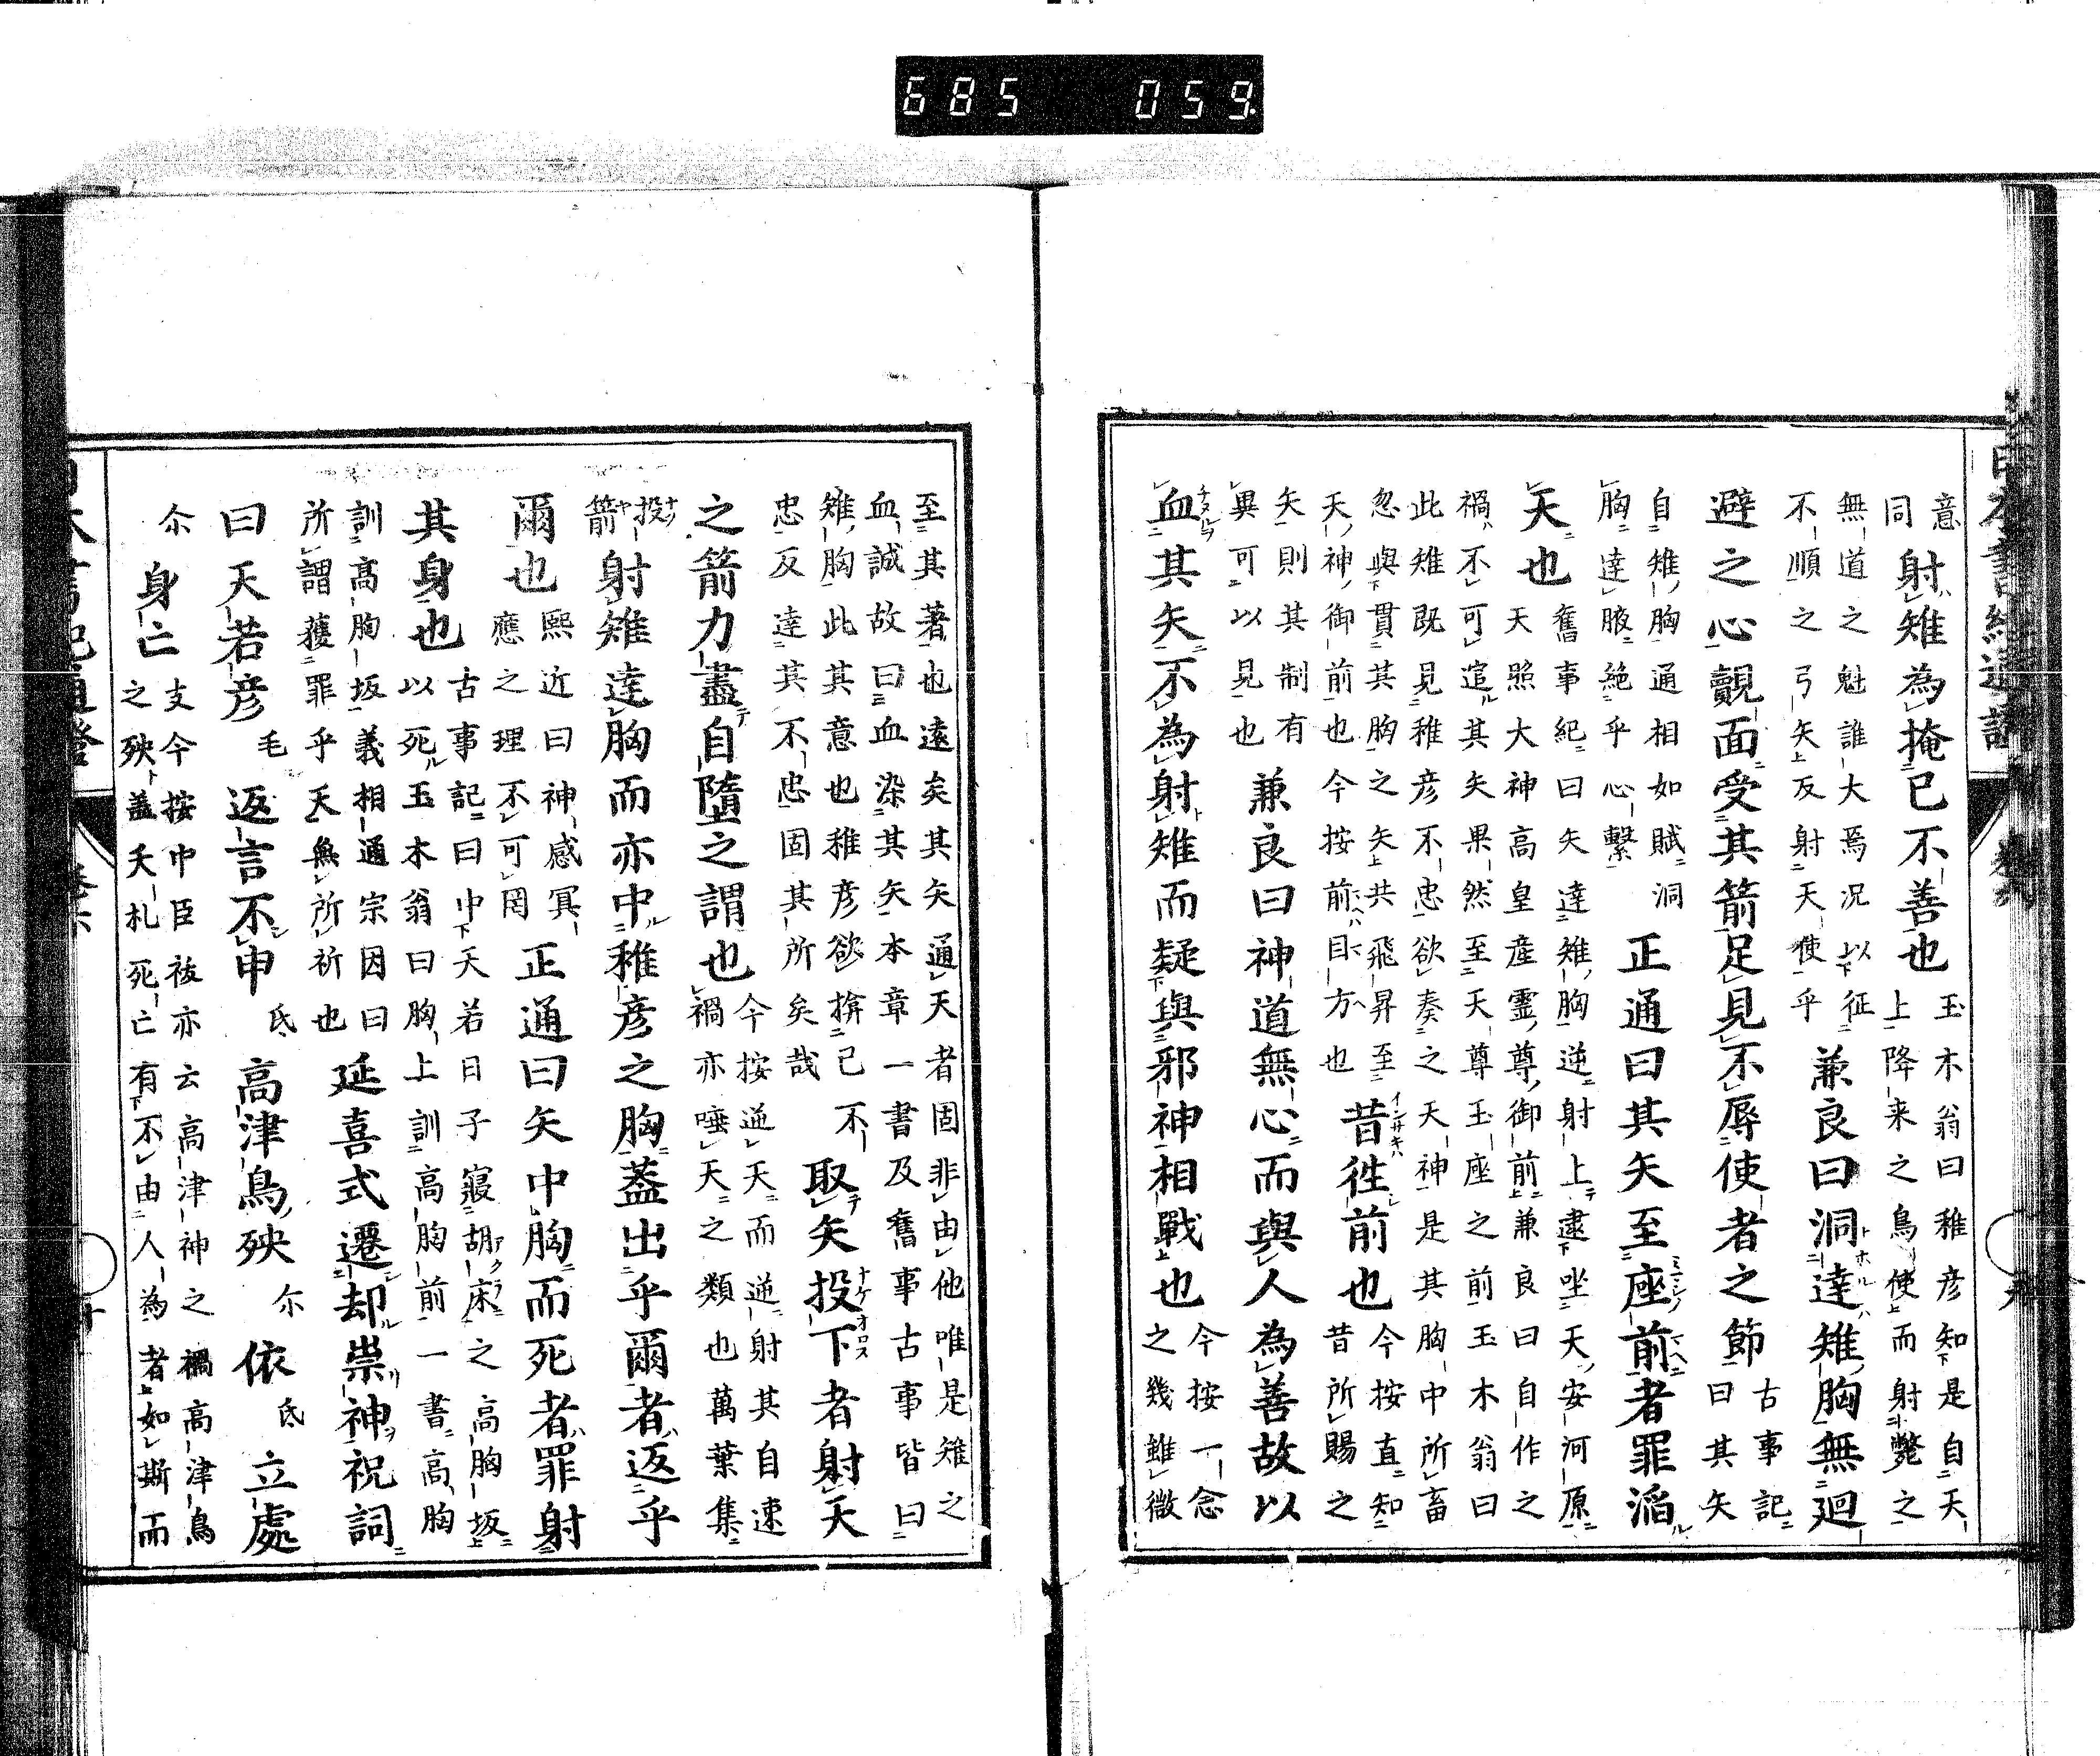 685 059
意
同射雉為掩已不善也玉木翁曰稚彦知是自天
上降来之鳥使而射斃之
無道之魁誰大焉況以征
不順之弓矢反射天使乎兼良曰洞達雉胸無迴
避之心覿面受其箭足見不辱使者之節古事記
曰其矢
自雉胸通相如賦洞
胸達腋絶乎心繫正通曰其矢至座前者罪滔
天也舊事紀曰矢達雉胸逆射上逮坐天安河原
天照大神高皇産霊尊御前兼良曰自作之
禍不可逭其矢果然至天尊玉座之前玉木翁曰
此雉既見稚彦不忠欲奏之天神是其胸中所畜
忽與貫其胸之矢共飛昇至
天神御前也今按前目方也昔徃前也今按直知
昔所賜之
矢則其制有
異可以見也兼良曰神道無心而與人為善故以
血其矢不為射雉而疑與邪神相戰也今按一念
之幾雖微
至其著也遠矣其矢通天者固非由他唯是雉之
血誠故曰血染其矢本章一書及舊事古事皆曰
雉胸此其意也稚彦欲揜己不
忠反達其不忠固其所矣哉取矢投下者射天
之箭力盡自墮之謂也今按逆天而逆射其自速
禍亦唾天之類也萬葉集
投
箭射雉達胸而亦中稚彦之胸蓋出乎爾者返乎
爾也熙近曰神感冥
應之理不可罔正通曰矢中胸而死者罪射
其身也古事記曰中天若日子寢胡床之高胸坂
以死玉木翁曰胸上訓高胸前一書高胸
訓高胸坂義相通宗因曰
所謂獲罪乎天無所祈也延喜式遷却祟神祝詞
曰天若彦毛返言不申氐高津鳥殃尓依氐立處
尓身亡支今按中臣祓亦云高津神之禍高津鳥
之殃蓋夭札死亡有不由人為者如斯而